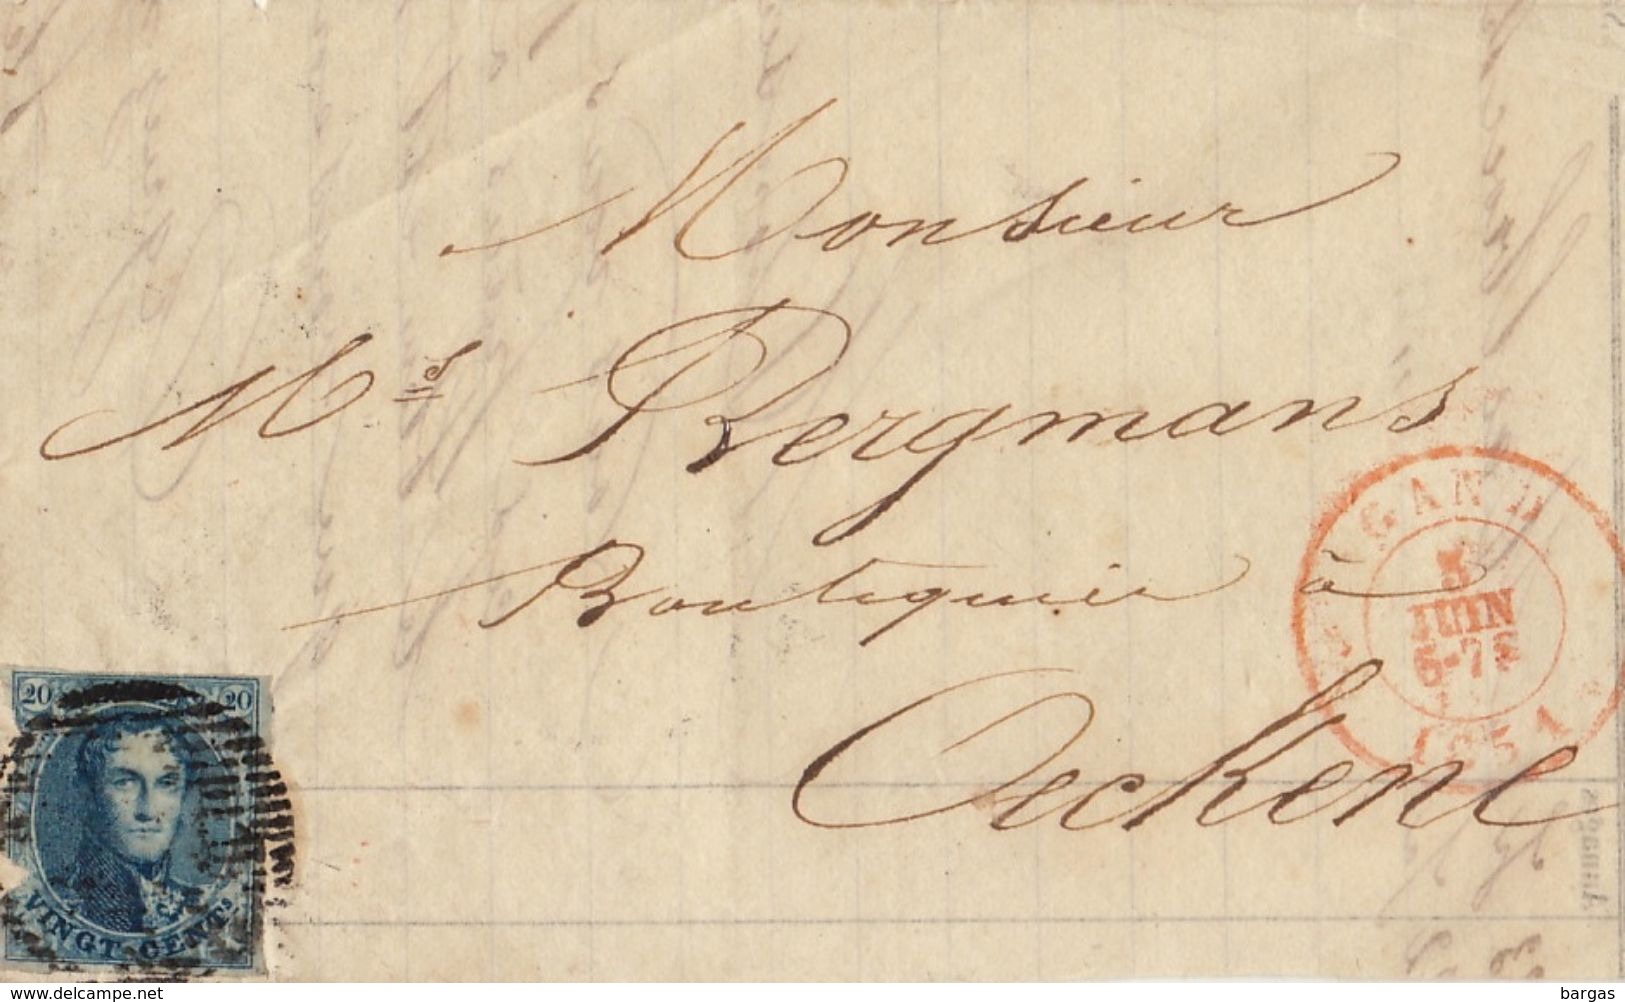 Monsieur
Ms Bergmans
Boutiquier à
Oeckene
GAND
JUIN
6-7S
1851
20 20
VINGT CENTs
www.delcampe.net
bargas